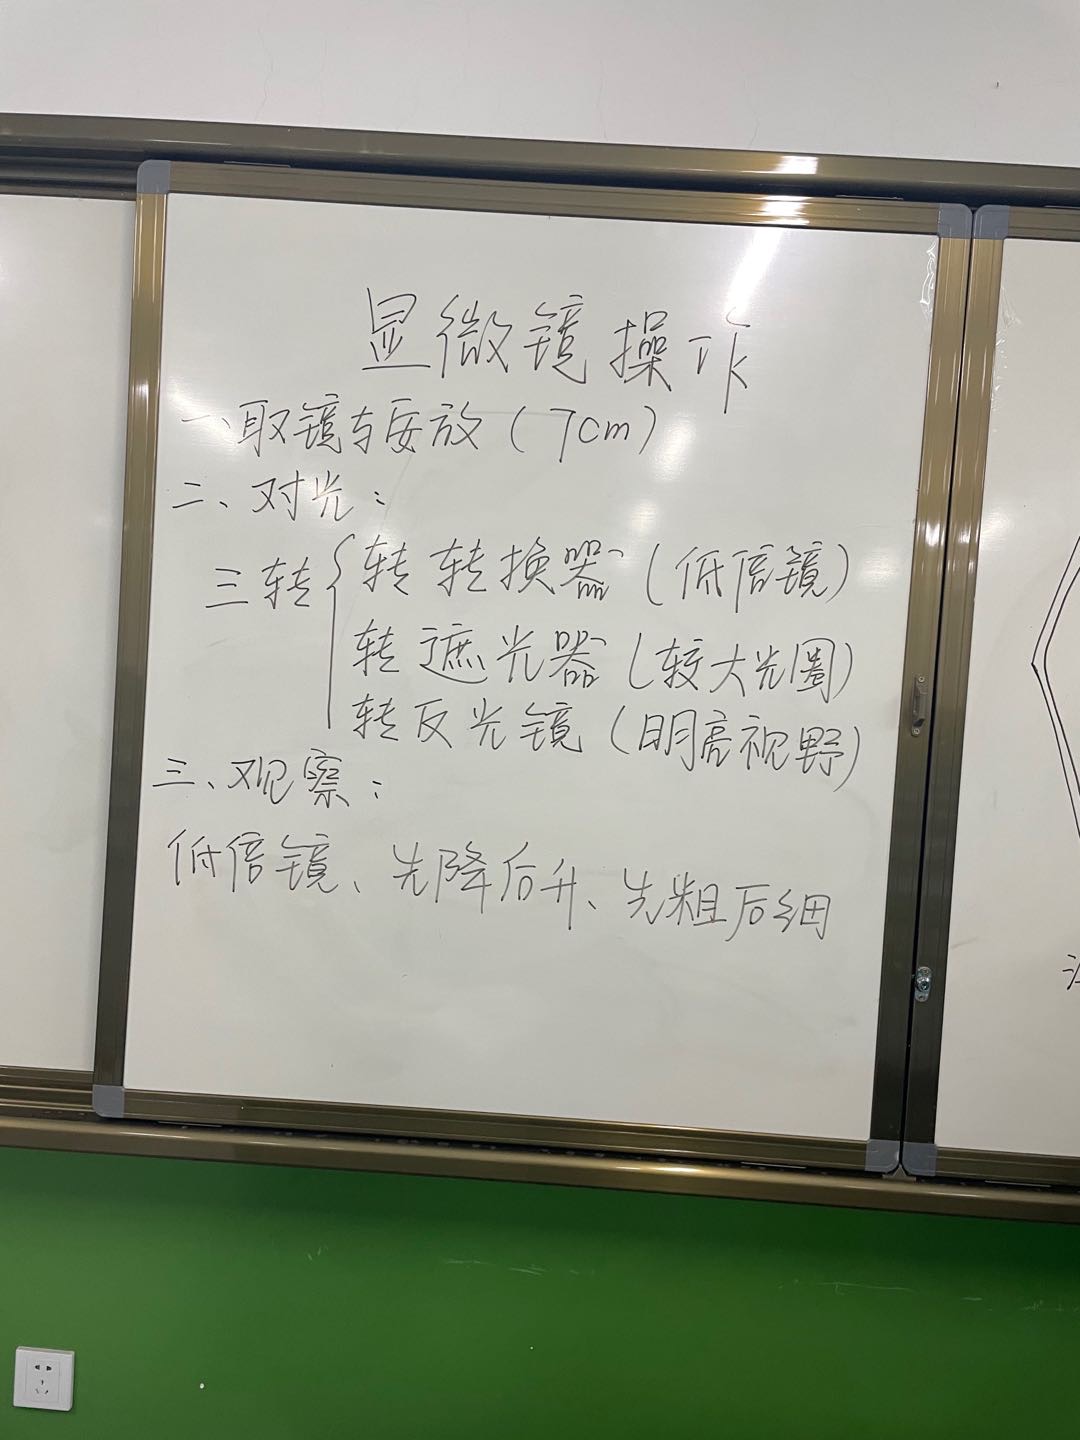 显微镜操作
一、取镜与安放(7cm)
二、对光:
三转{转转换器(低倍镜)
转遮光器(较大光圈)
转反光镜(明亮视野)
三、观察:
低倍镜、先降后升、先粗后细